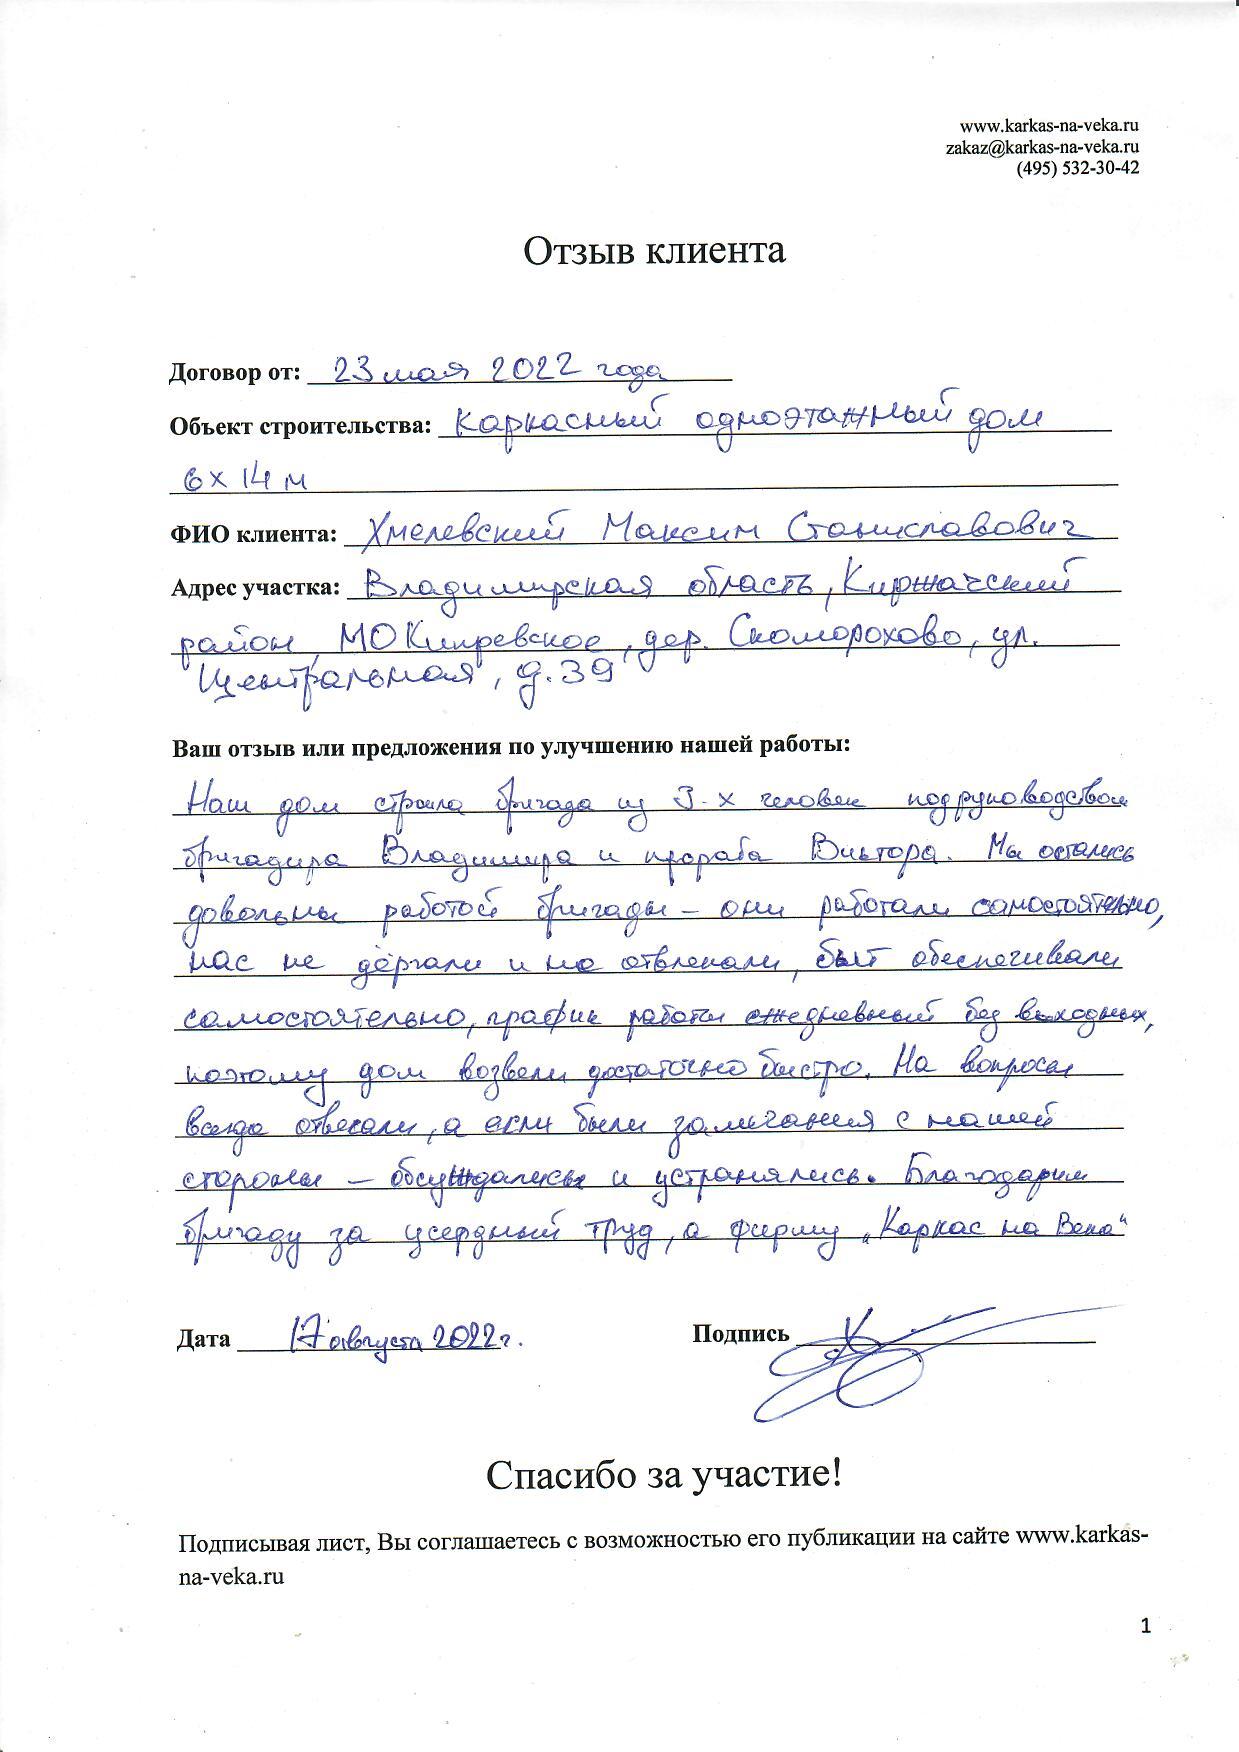 www.karkas-na-veka.ru
zakaz@karkas-na-veka.ru
(495) 532-30-42
Отзыв клиента
Договор от: 23 мая 2022 года
Объект строительства: Каркасный одноэтажный дом
6 х 14 м
ФИО клиента: Хмелевский Максим Станиславович
Адрес участка: Владимирская область, Киржачский
район, МО Кипревское, дер. Скоморохово, ул.
Центральная, д. 39
Ваш отзыв или предложения по улучшению нашей работы:
Наш дом строила бригада из 3-х человек под руководством
бригадира Владимира и прораба Виктора. Мы остались
довольны работой бригады – они работали самостоятельно,
нас не дёргали и не отвлекали, быт обеспечивали
самостоятельно, график работы ежедневный без выходных,
поэтому дом возвели достаточно быстро. На вопросы
всегда отвечали, а если были замечания с нашей
стороны – обсуждались и устранялись. Благодарим
бригаду за усердный труд, а фирму „Каркас на Века“
Дата 17 августа 2022 г.
Подпись
Спасибо за участие!
Подписывая лист, Вы соглашаетесь с возможностью его публикации на сайте www.karkas-
na-veka.ru
1